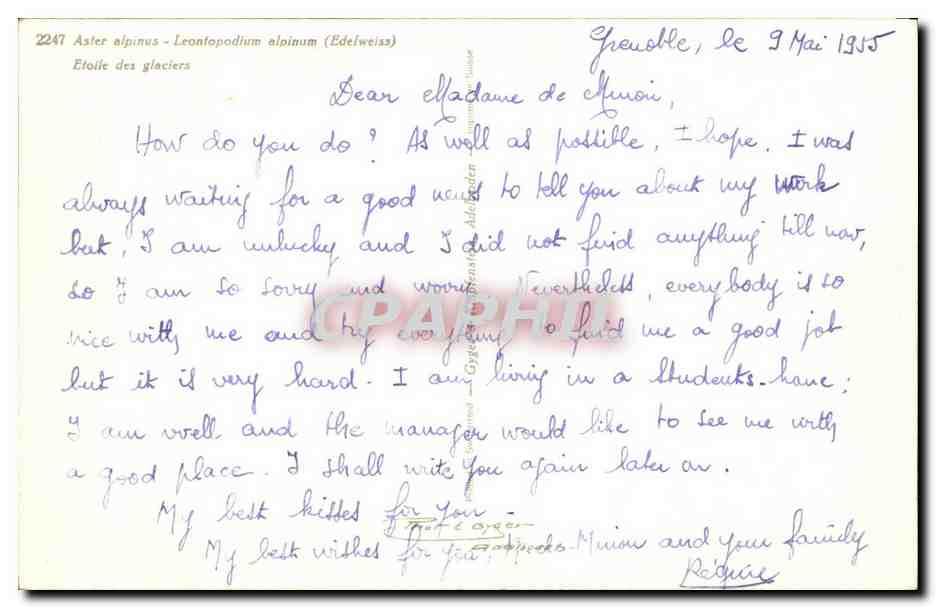 2247 Aster alpinus - Leontopodium alpinum (Edelweiss)
Etoile des glaciers
Grenoble, le 9 Mai 1955
Dear Madame de Minori,
How do you do? As well as possible, I hope. I was
always waiting for a good news to tell you about my work
but, I am unlucky and I did not find anything till now,
so I am so sorry and worry. Nevertheless, everybody is so
nice with me and try everything to find me a good job
but it is very hard. I am living in a students-home;
I am well and the manager would like to see me with
a good place. I shall write you again later on.
My best kisses for you
My best wishes for you, and your family
Régine
CPAPHIL